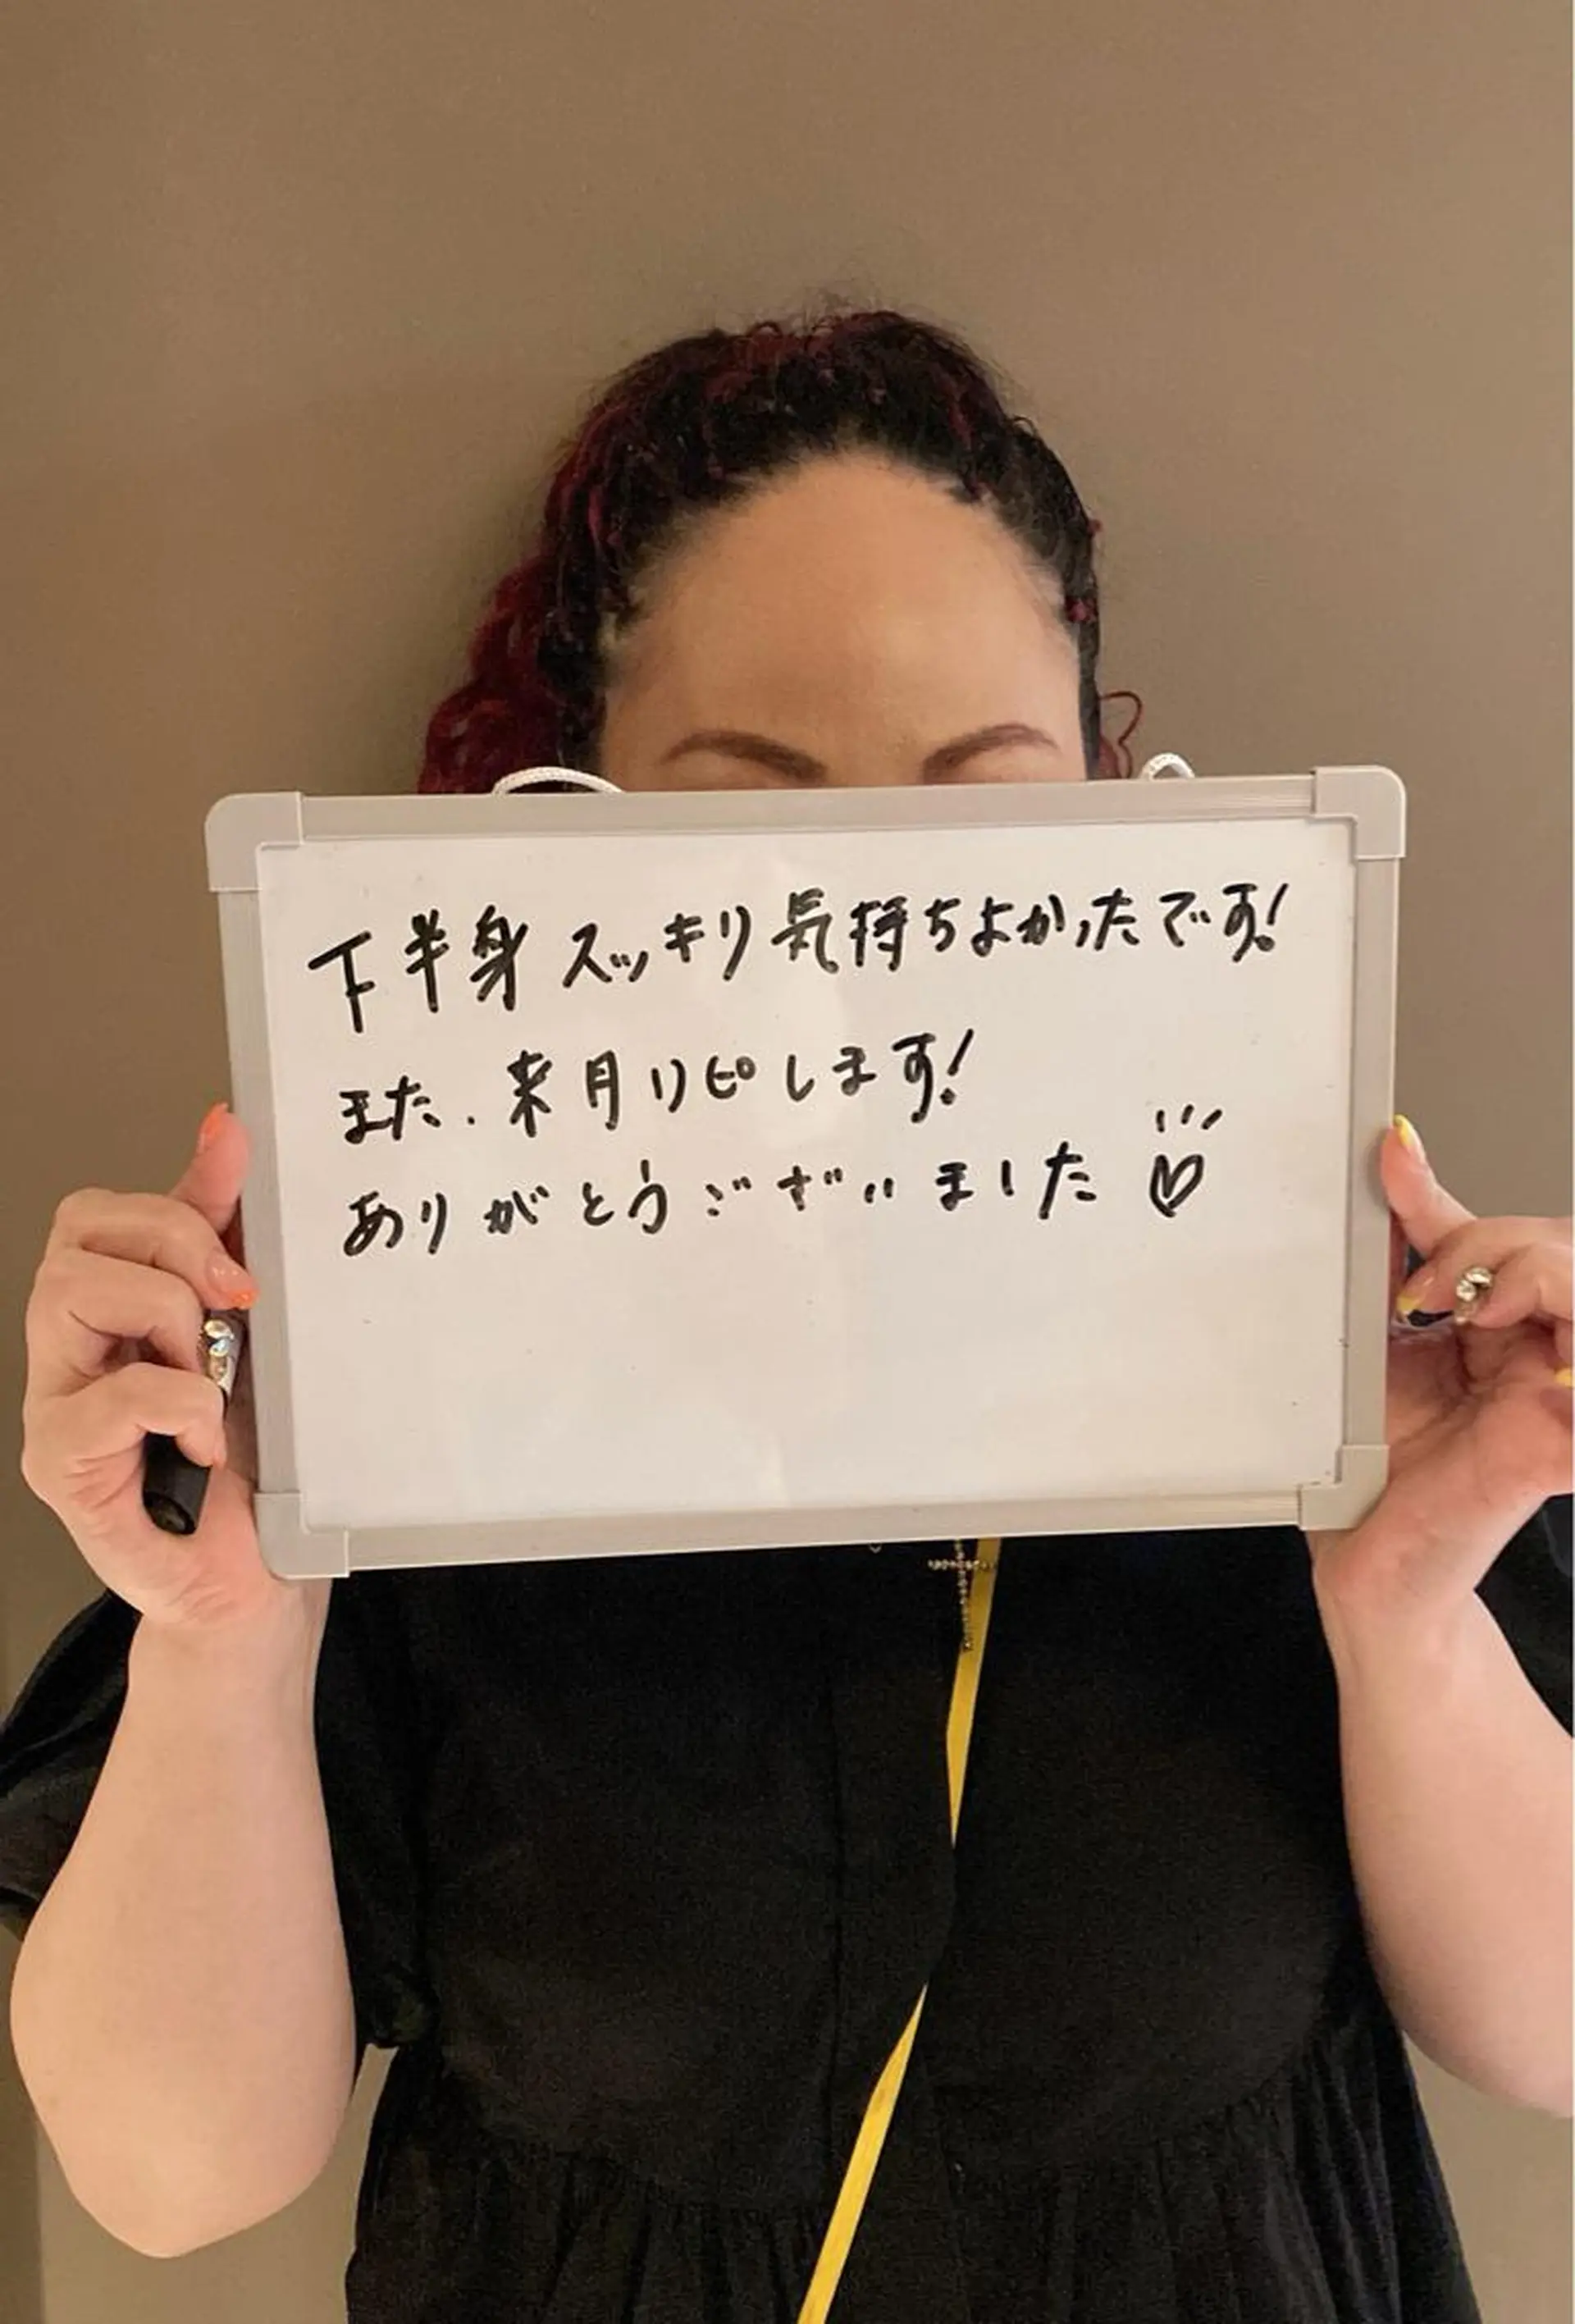 下半身スッキリ気持ちよかったです!
また、来月リピします!
ありがとうございました♡